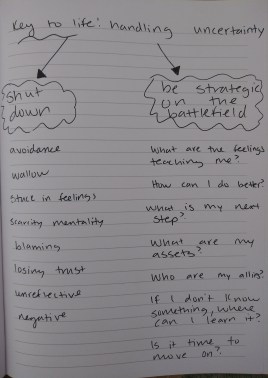 Key to life: handling uncertainty
shut
down
be strategic
on the
battlefield
avoidance
wallow
stuck in feelings
scarcity mentality
blaming
losing trust
unreflective
negative
What are the feelings
teaching me?
How can I do better?
What is my next
step?
What are my
assets?
Who are my allies?
If I don't know
something, where
can I learn it?
Is it time to
move on?